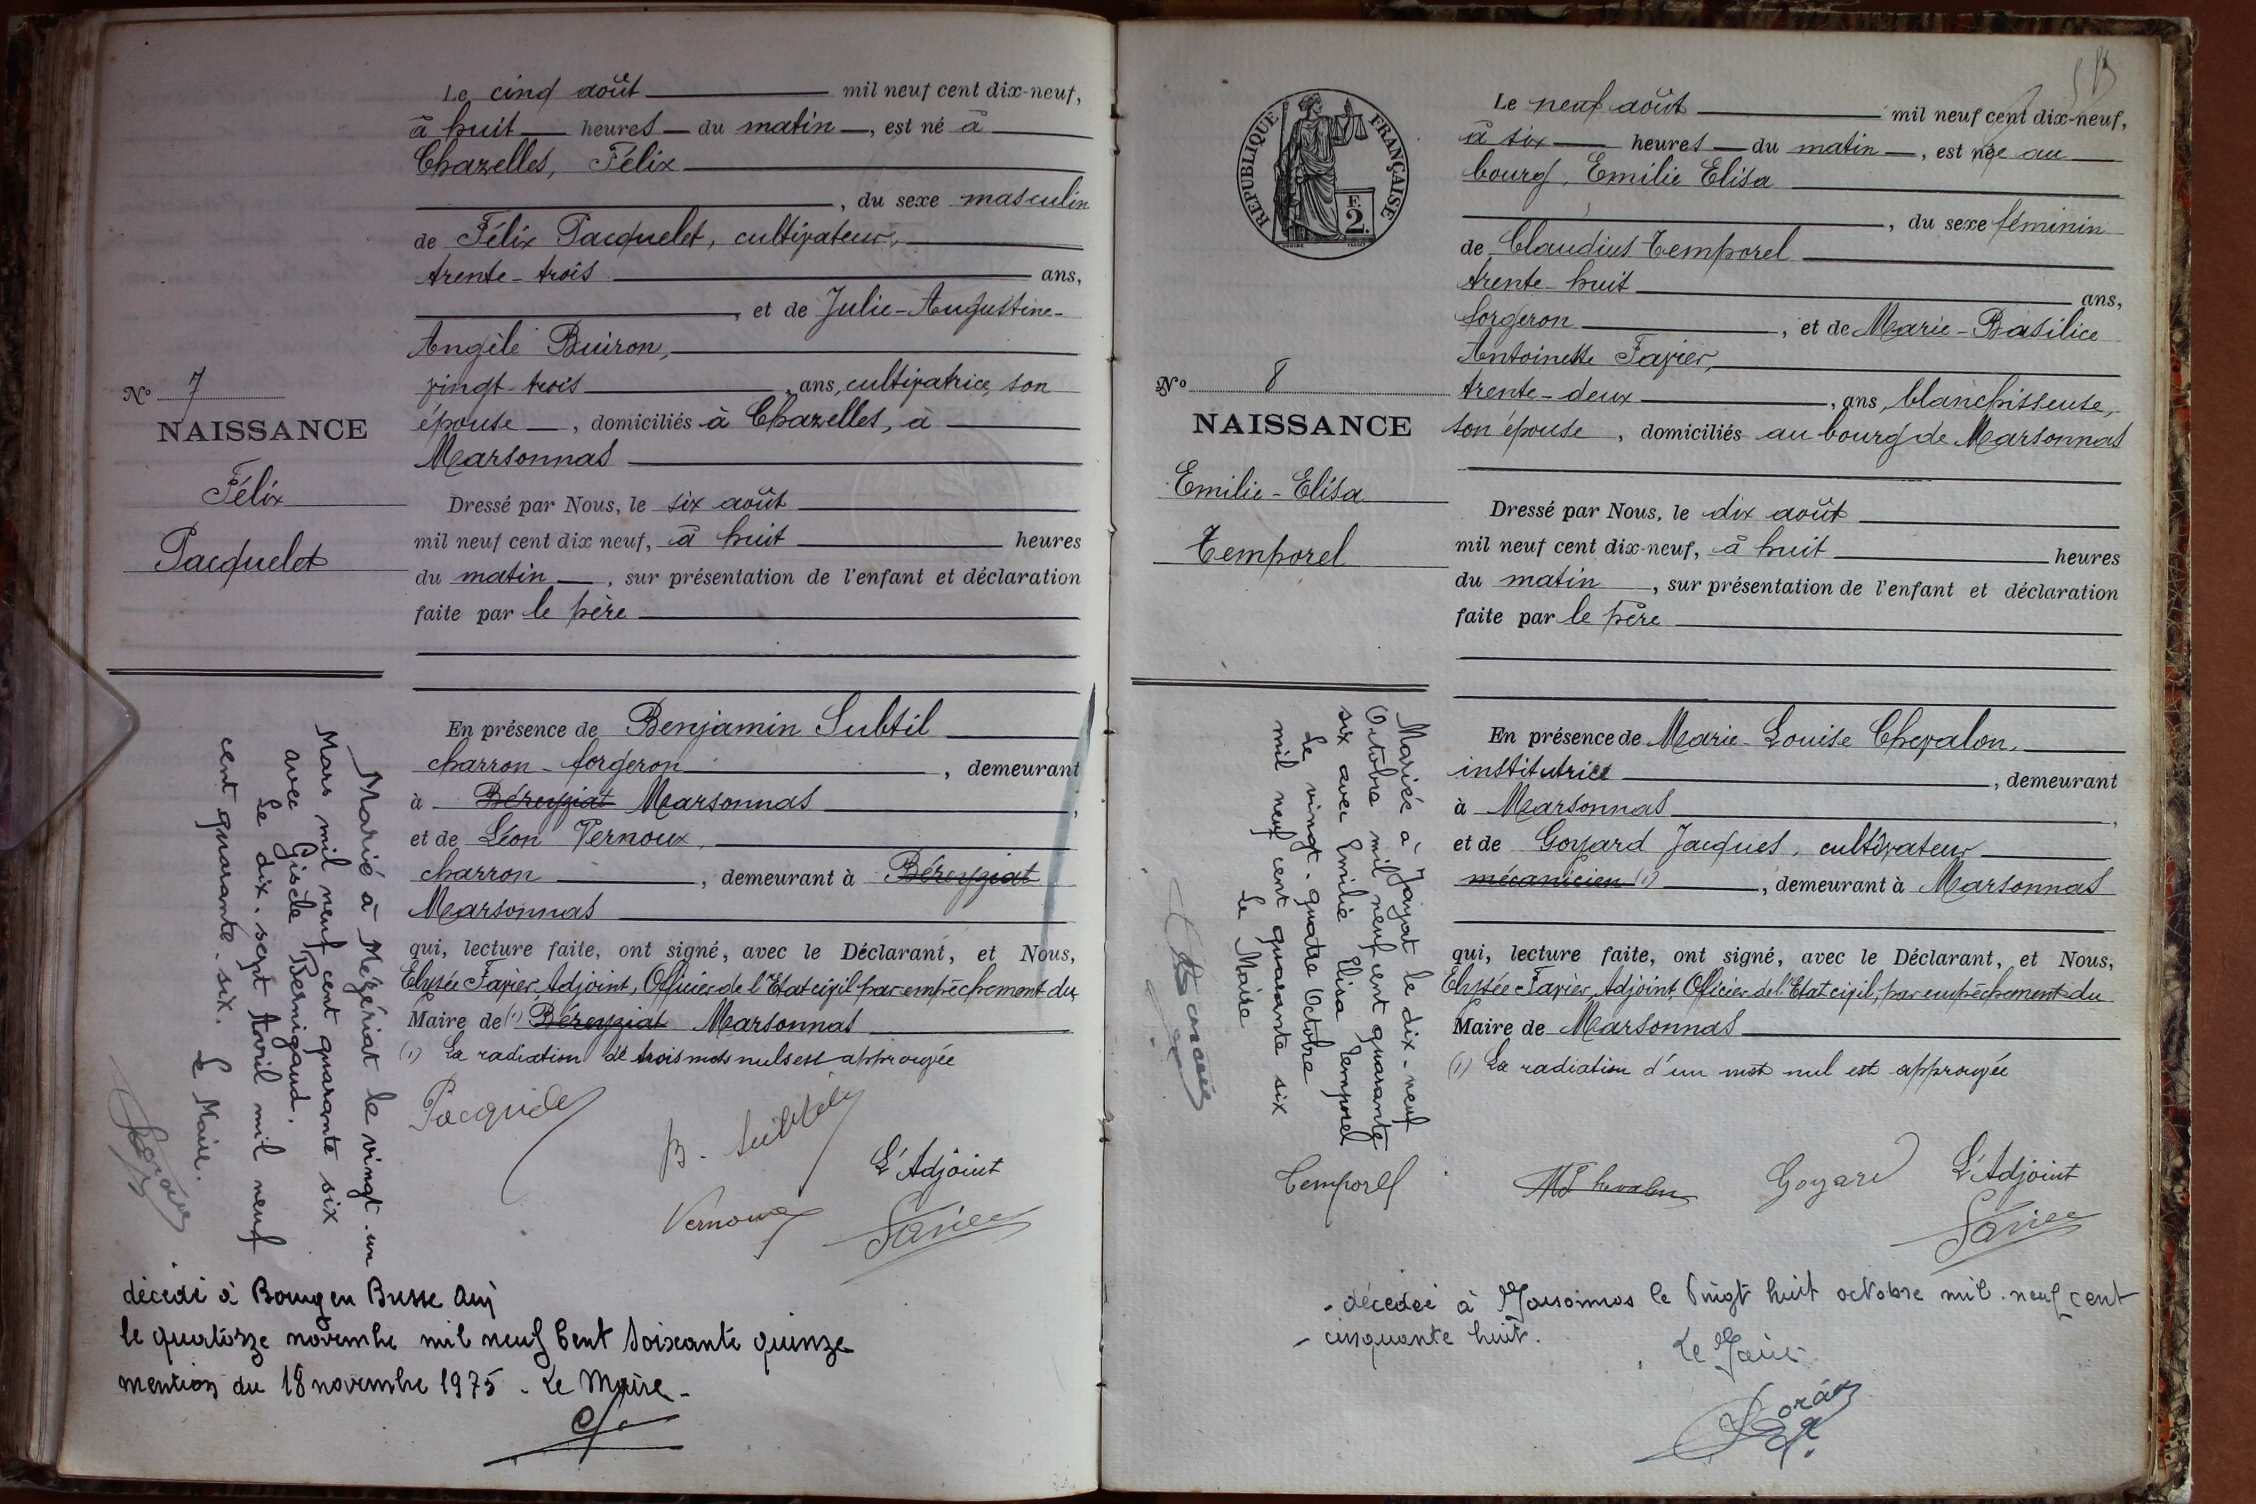 Le cinq août mil neuf cent dix-neuf,
à huit heures du matin, est né à
Chazelles, Félix
, du sexe masculin
de Félix Pacquelet, cultivateur,
trente-trois ans,
, et de Julie-Augustine-
Angèle Buiron,
vingt-trois ans, cultivatrice, son
épouse, domiciliés à Chazelles, à
Marsonnas
Dressé par Nous, le six août
mil neuf cent dix neuf, à huit heures
du matin, sur présentation de l'enfant et déclaration
faite par le père
En présence de Benjamin Subtil
charron-forgeron, demeurant
à Béreyziat Marsonnas,
et de Léon Vernoux,
charron, demeurant à Béreyziat
Marsonnas
qui, lecture faite, ont signé, avec le Déclarant, et Nous,
Elysée Favier, Adjoint, Officier de l'Etat civil par empêchement du
Maire de (1) Béreyziat Marsonnas
(1) La radiation de trois mots nuls est approuvée
Pacquelet
B. Subtil
L'Adjoint
Vernoux
Favier
No 7
NAISSANCE
Félix
Pacquelet
Marié à Mézériat le vingt-un
Mars mil neuf cent quarante six
avec Gisèle Bernigaud.
Le dix-sept Avril mil neuf
cent quarante-six. Le Maire.
décédé à Bourg en Bresse Ain
le quatorze novembre mil neuf Cent Soixante quinze
mention du 18 novembre 1975 - Le Maire -
RÉPUBLIQUE FRANÇAISE
F.
2.
Le neuf août mil neuf cent dix-neuf,
à six heures du matin, est née au
bourg, Emilie Elisa
, du sexe féminin
de Claudius Temporel
trente-huit ans,
forgeron, et de Marie-Basilice
Antoinette Favier,
trente-deux, ans, blanchisseuse,
son épouse, domiciliés au bourg de Marsonnas
Dressé par Nous, le dix août
mil neuf cent dix-neuf, à huit heures
du matin, sur présentation de l'enfant et déclaration
faite par le père
En présence de Marie-Louise Chevalon,
institutrice, demeurant
à Marsonnas,
et de Goyard Jacques, cultivateur
mécanicien (1), demeurant à Marsonnas
qui, lecture faite, ont signé, avec le Déclarant, et Nous,
Elysée Favier, Adjoint, Officier de l'Etat civil, par empêchement du
Maire de Marsonnas
(1) La radiation d'un mot nul est approuvée
Temporel
ML Chevalon
Goyard
L'Adjoint
Favier
No 8
NAISSANCE
Emilie-Elisa
Temporel
Mariée à Jayat le dix-neuf
Octobre mil neuf cent quarante
six avec Emilie Elisa Temporel
Le vingt-quatre Octobre
mil neuf cent quarante six
Le Maire
- décédée à Marsonnas le Vingt huit octobre mil neuf cent
- cinquante huit.
Le Maire